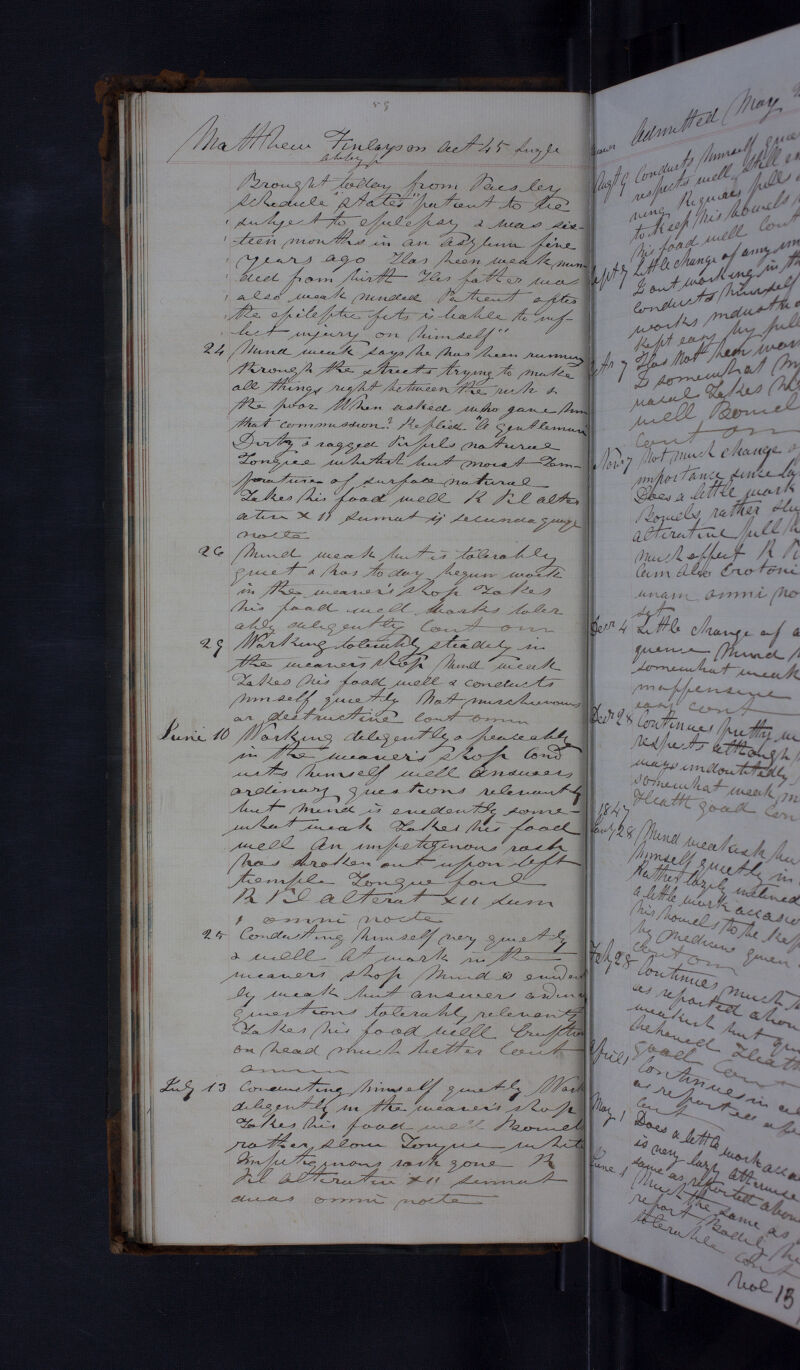 59
Matthew Finlayson aet 45 Single
Brought today from Paisley
schedule "states" patient to be
subject to epilepsy & was six-
teen months in an asylum five
years ago Has been weak min
ded from birth His father was
also weak minded Patient after
the epileptic fits is liable to inf
lict injury on himself"
24 Mind weak says he has been running
through the streets trying to make
all things right between the rich &
the poor When asked who gave him
that commission? Replied "A gentleman
Dirty & ragged Pupils natural
Tongue whitish but moist Tem
perature of surface natural
Takes his food well R Pil alter
ative XII sumat ij secunda quaque
nocte
26 Mind weak but is tolerably
quiet & has today begun work
in the weaver's shop Takes
his food well Works toler
ably deligently Cont omn
29 Working tolerably steadily in
the weavers shop Mind weak
Takes his food well & conducts
himself quietly Not mischievous
or destructive cont omn
June 10 Working deligently & peaceably
in the weaver's shop Cond
ucts himself well answers
ordinary questions relevantly
but mind is evidently some-
what weak Takes his food
well An impetiginous rash
has broken out upon left
temple Tongue foul
R Pil alterat XII sum
omni nocte
25 Conducting himself very quietly
& well At work in the
weavers shop Mind is eviden
ly weak but answers ordin
questions tolerably relevantly
Takes his food well Eruption
on head much better Cont
omn
July 13 Conducting himself quietly Work
deligently in the weaver's shop
Takes his food well Bowel
rather slow Tongue white
Impetiginous rash gone R
Pil alterative XII sumat
duas omni nocte
Admitted May
Augt 9 Conducts himself quie
respects well Still
ning Requires pills
to keep his bowels
his food well Cont
Sept 7 Little change of any im
Is out working in th
Conducts himself
works industrio
Kept easy by pill
7 Has not been wor
Is somewhat
usual Takes his
well Bowel
Cont om
Novr 7 Not much change o
importance since la
Does a little work
Bowels rather slu
alterative pill h
much effect R P
Cum oleo Crotoni
unam omni no
Decr 4 Little change of a
quence Mind
somewhat weak
inoffensive
easy cont
Decr 28 Continues pretty w
respects although
ways undoubtedly
somewhat weak m
Health good Con
1847
Jany 28 Mind weakish bu
himself quietly in
Rather lazily inclined
a little work occasio
his bowels to be kep
by medicine given
Cont om
Feby 28 Continues much
as reported abov
weakish but qui
behaved Health
good Con
April 1 Continues in al
as reported
Cont
May 1 Does a little work occa
is very lazy otherwise
same as reported above
June 1 Much the same as
report Bodily he
tolerable Cont
Nol 13